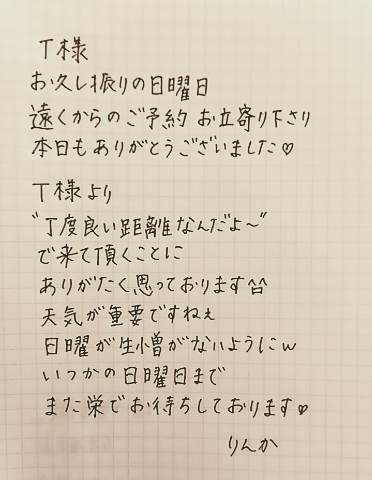 T様
お久し振りの日曜日
遠くからのご予約 お立寄り下さり
本日もありがとうございました♡
T様より
"丁度良い距離なんだよ〜"
で来て頂くことに
ありがたく思っております^^
天気が重要ですねぇ
日曜が生憎がないようにw
いつかの日曜日まで
また栄でお待ちしております♡
りんか